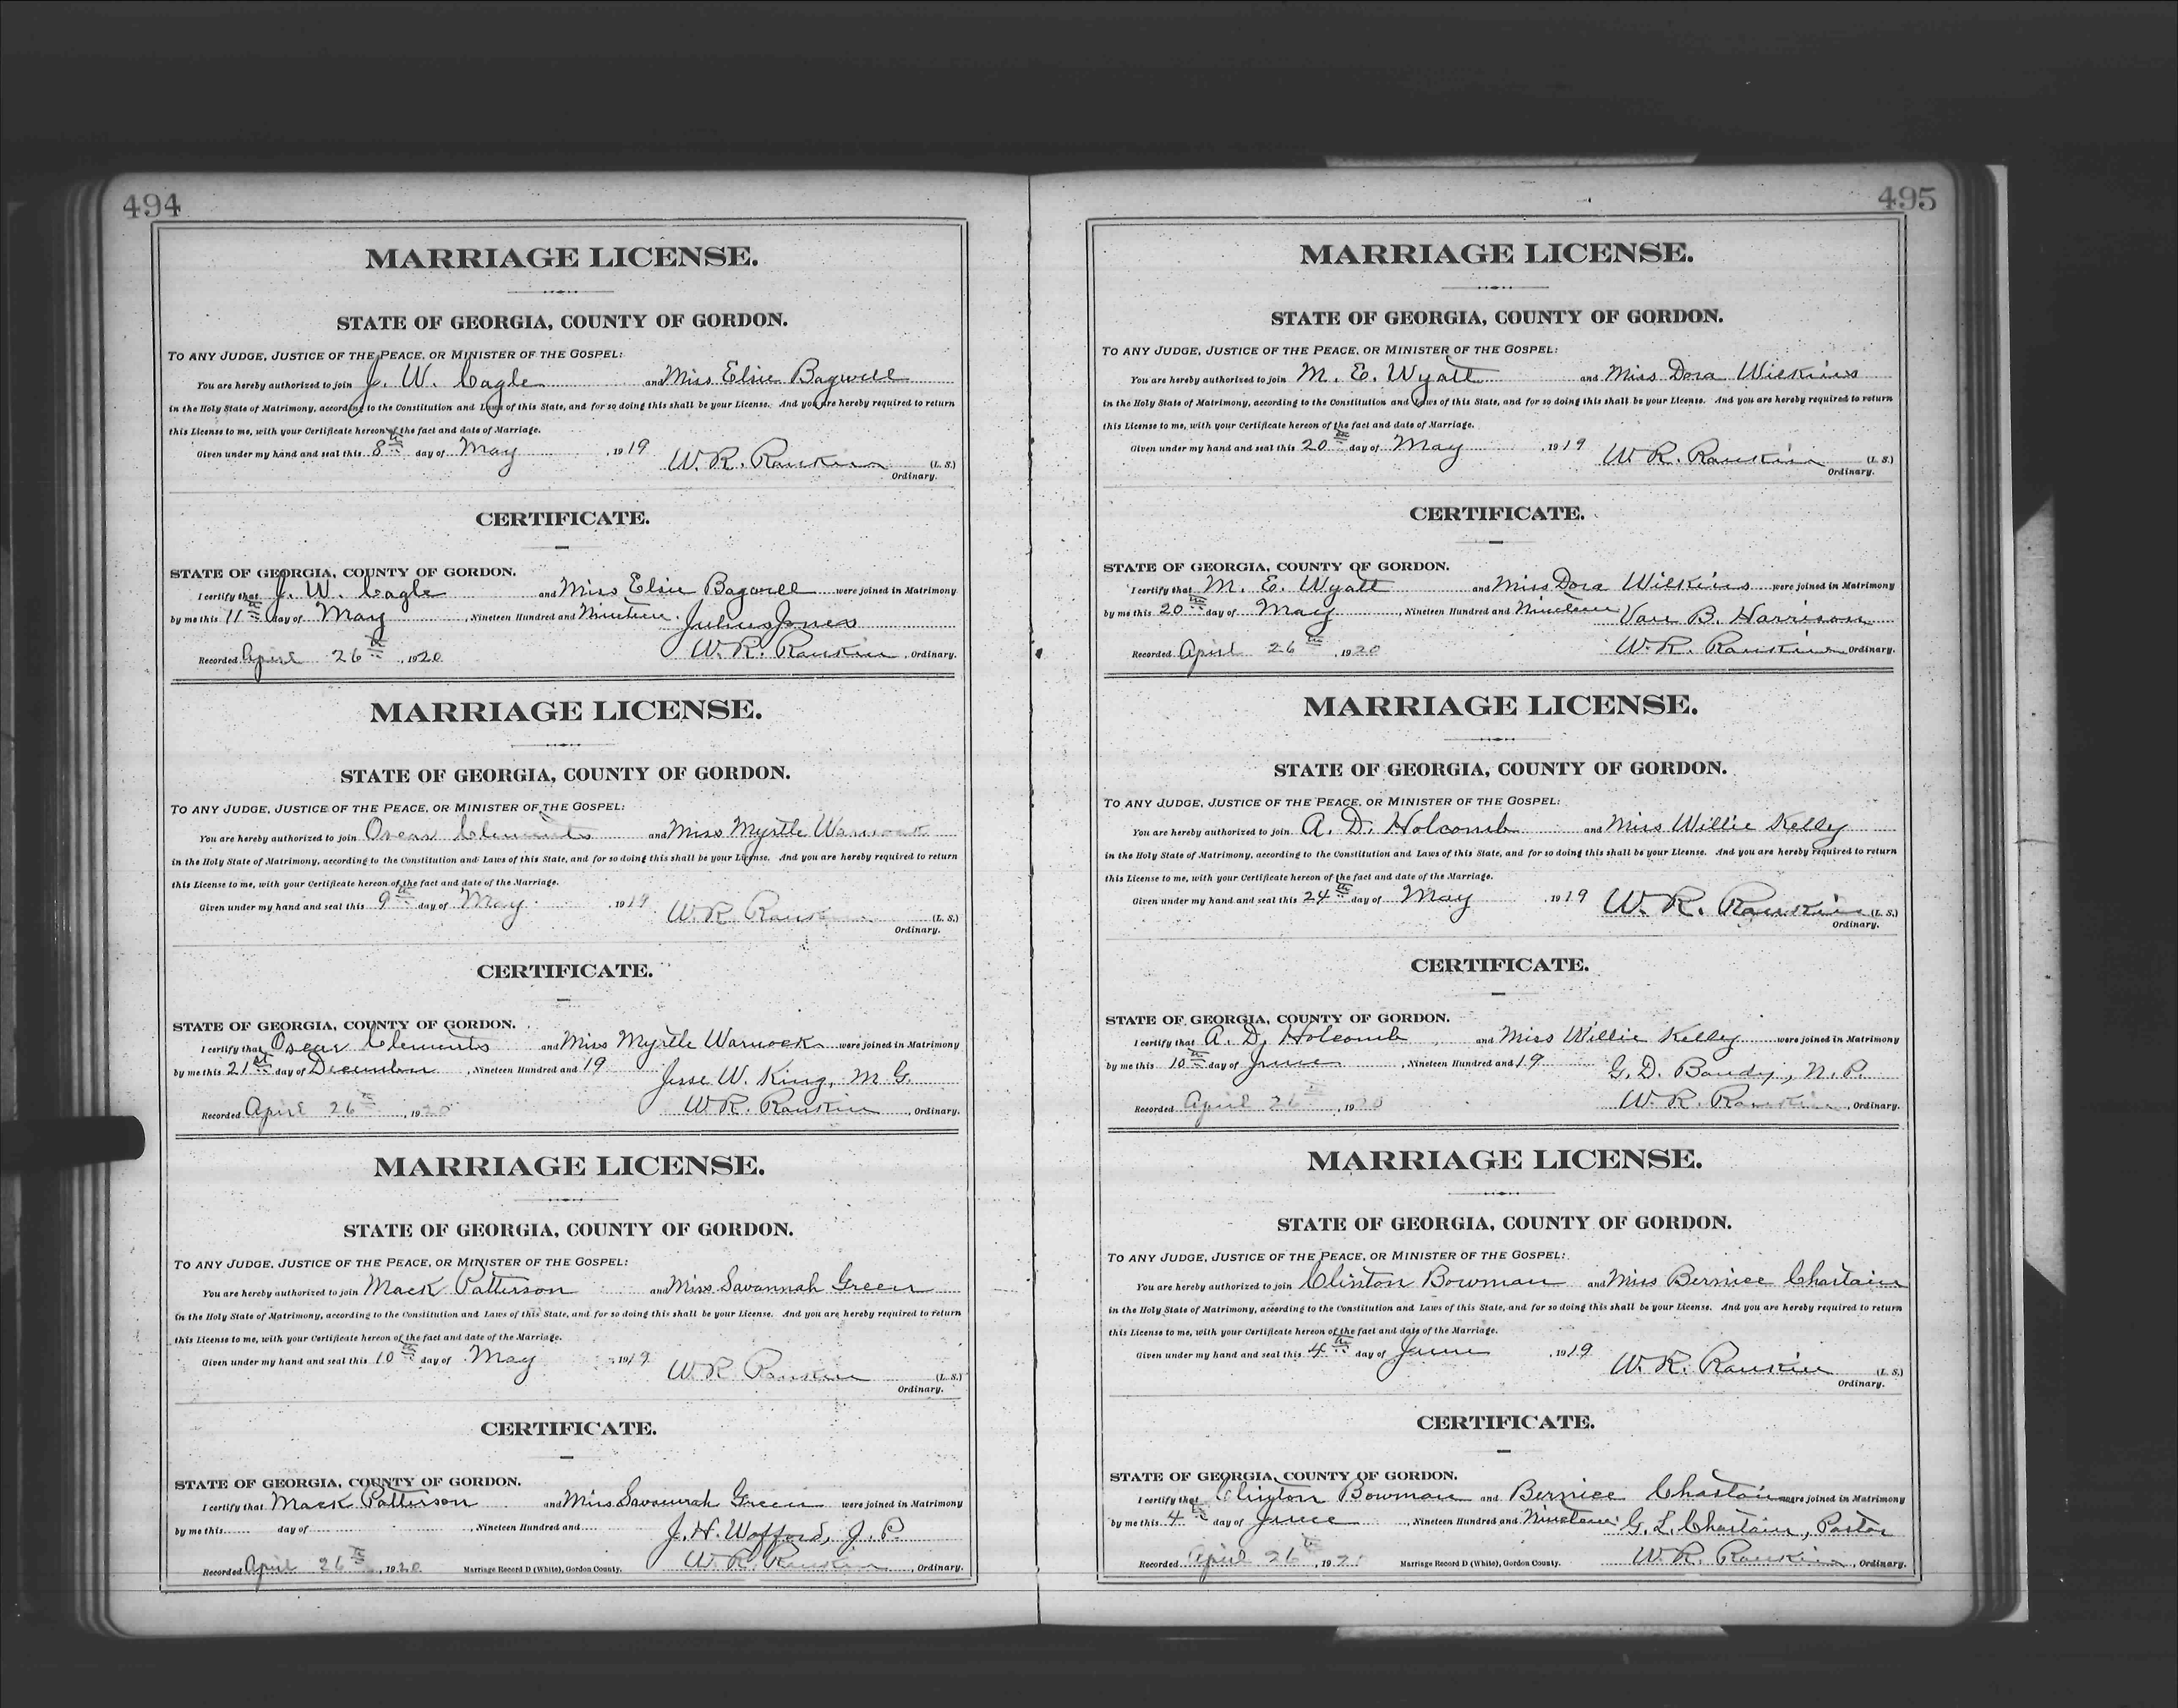 494
MARRIAGE LICENSE.
STATE OF GEORGIA, COUNTY OF GORDON.
TO ANY JUDGE, JUSTICE OF THE PEACE, OR MINISTER OF THE GOSPEL:
You are hereby authorized to join J. W. Cagle and Miss Elsie Bagwell
in the Holy State of Matrimony, according to the Constitution and Laws of this State, and for so doing this shall be your License. And you are hereby required to return
this License to me, with your Certificate hereon of the fact and date of Marriage.
Given under my hand and seal this 8th day of May, 1919 W. R. Rankin (L. S.)
Ordinary.
CERTIFICATE.
STATE OF GEORGIA, COUNTY OF GORDON.
I certify that J. W. Cagle and Miss Elsie Bagwell were joined in Matrimony
by me this 11th day of May, Nineteen Hundred and Nineteen. Julius Jones
Recorded April 26th, 1920 W. R. Rankin, Ordinary.
MARRIAGE LICENSE.
STATE OF GEORGIA, COUNTY OF GORDON.
TO ANY JUDGE, JUSTICE OF THE PEACE, OR MINISTER OF THE GOSPEL:
You are hereby authorized to join Oscar Clements and Miss Myrtle Warnock
in the Holy State of Matrimony, according to the Constitution and Laws of this State, and for so doing this shall be your License. And you are hereby required to return
this License to me, with your Certificate hereon of the fact and date of the Marriage.
Given under my hand and seal this 9th day of May, 1919 W. R. Rankin (L. S.)
Ordinary.
CERTIFICATE.
STATE OF GEORGIA, COUNTY OF GORDON.
I certify that Oscar Clements and Miss Myrtle Warnock were joined in Matrimony
by me this 21st day of December, Nineteen Hundred and 19 Jesse W. King, M. G.
Recorded April 26th, 1920 W. R. Rankin, Ordinary.
MARRIAGE LICENSE.
STATE OF GEORGIA, COUNTY OF GORDON.
TO ANY JUDGE, JUSTICE OF THE PEACE, OR MINISTER OF THE GOSPEL:
You are hereby authorized to join Mack Patterson and Miss Savannah Green
in the Holy State of Matrimony, according to the Constitution and Laws of this State, and for so doing this shall be your License. And you are hereby required to return
this License to me, with your Certificate hereon of the fact and date of the Marriage.
Given under my hand and seal this 10th day of May, 1919 W. R. Rankin (L. S.)
Ordinary.
CERTIFICATE.
STATE OF GEORGIA, COUNTY OF GORDON.
I certify that Mack Patterson and Miss Savannah Green were joined in Matrimony
by me this day of, Nineteen Hundred and J. H. Wofford, J. P.
Recorded April 26th, 1920 Marriage Record D (White), Gordon County. W. R. Rankin, Ordinary.
495
MARRIAGE LICENSE.
STATE OF GEORGIA, COUNTY OF GORDON.
TO ANY JUDGE, JUSTICE OF THE PEACE, OR MINISTER OF THE GOSPEL:
You are hereby authorized to join M. E. Wyatt and Miss Dora Wilkins
in the Holy State of Matrimony, according to the Constitution and Laws of this State, and for so doing this shall be your License. And you are hereby required to return
this License to me, with your Certificate hereon of the fact and date of Marriage.
Given under my hand and seal this 20th day of May, 1919 W. R. Rankin (L. S.)
Ordinary.
CERTIFICATE.
STATE OF GEORGIA, COUNTY OF GORDON.
I certify that M. E. Wyatt and Miss Dora Wilkins were joined in Matrimony
by me this 20th day of May, Nineteen Hundred and Nineteen Van B. Harrison
Recorded April 26th, 1920 W. R. Rankin Ordinary.
MARRIAGE LICENSE.
STATE OF GEORGIA, COUNTY OF GORDON.
TO ANY JUDGE, JUSTICE OF THE PEACE, OR MINISTER OF THE GOSPEL:
You are hereby authorized to join A. D. Holcomb and Miss Willie Kelly
in the Holy State of Matrimony, according to the Constitution and Laws of this State, and for so doing this shall be your License. And you are hereby required to return
this License to me, with your Certificate hereon of the fact and date of the Marriage.
Given under my hand and seal this 24th day of May 1919 W. R. Rankin (L. S.)
Ordinary.
CERTIFICATE.
STATE OF GEORGIA, COUNTY OF GORDON.
I certify that A. D. Holcomb and Miss Willie Kelly were joined in Matrimony
by me this 10th day of June, Nineteen Hundred and 19 G. D. Bandy, N. P.
Recorded April 26th, 1920 W. R. Rankin, Ordinary.
MARRIAGE LICENSE.
STATE OF GEORGIA, COUNTY OF GORDON.
TO ANY JUDGE, JUSTICE OF THE PEACE, OR MINISTER OF THE GOSPEL:
You are hereby authorized to join Clinton Bowman and Miss Bernice Chastain
in the Holy State of Matrimony, according to the Constitution and Laws of this State, and for so doing this shall be your License. And you are hereby required to return
this License to me, with your Certificate hereon of the fact and date of the Marriage.
Given under my hand and seal this 4th day of June, 1919 W. R. Rankin (L. S.)
Ordinary.
CERTIFICATE.
STATE OF GEORGIA, COUNTY OF GORDON.
I certify that Clinton Bowman and Bernice Chastain were joined in Matrimony
by me this 4th day of June, Nineteen Hundred and Nineteen. G. L. Chastain, Pastor
Recorded April 26th, 1920 Marriage Record D (White), Gordon County. W. R. Rankin, Ordinary.